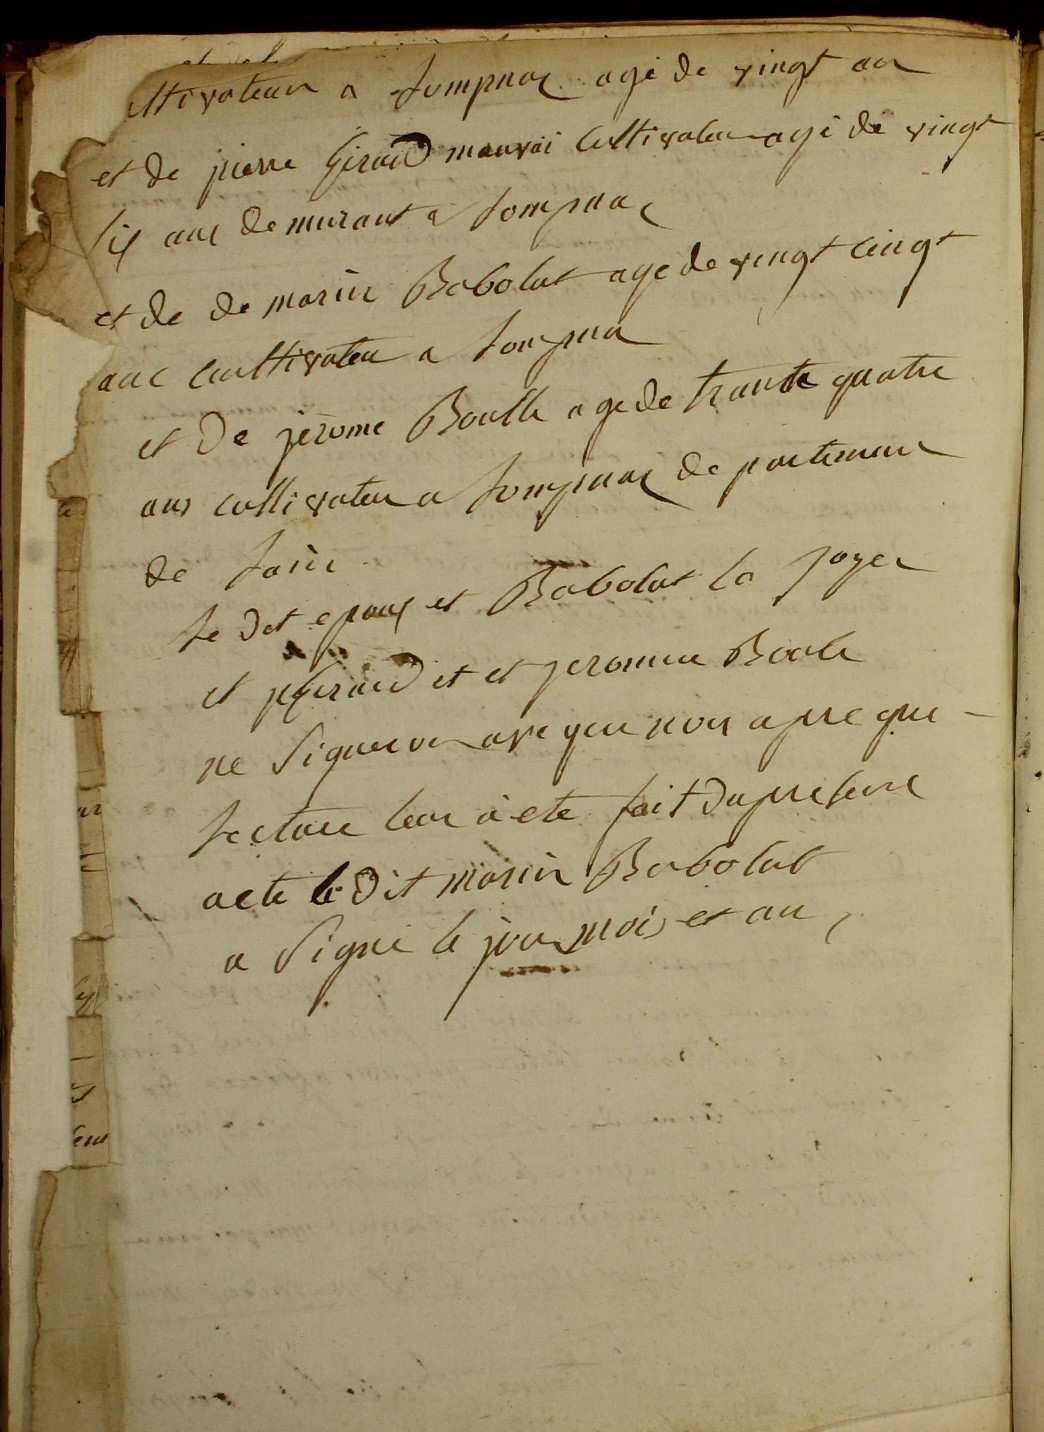 ultivateur a Sompnac age de vingt an
et de pierre Giraud mauvai cultivateur agé de vingt
six ans demurant a Sompnac
et de de marin Babolat age de vingt cingt
anc cultivateur a Sompna
et De jerome Boulle agede trante quatre
ans cultivateur a Sompnac de partement
de
le Dit epoux et Babolat la
et pgiraud et et jeromme Boole
ne Signeron avaque nous apre que
lecture leur à ete fait Du present
acte le Dit marin Babolat
a Signe le jour mois et an